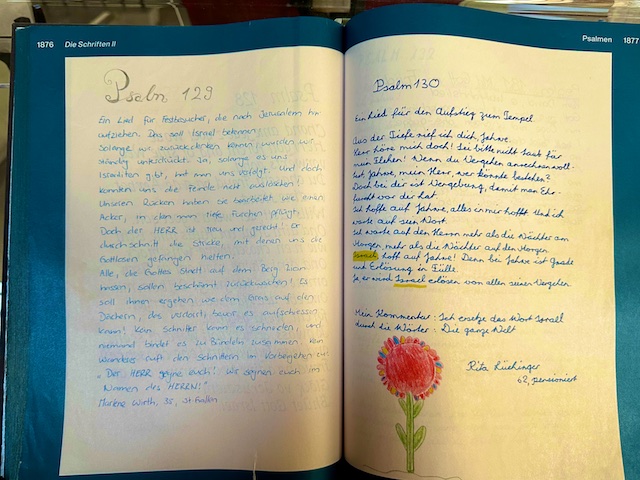 1876 Die Schriften II
Psalm 129
Ein Lied für Festbesucher, die nach Jerusalem hin-
aufziehen. Das soll Israel bekennen:
Solange wir zurückdenken können, wurden wir
ständig unterdrückt. Ja, solange es uns
Israeliten gibt, hat man uns verfolgt. und doch
konnten uns die Feinde nicht auslöschen!
Unseren Rücken haben sie bearbeitet wie einen
Acker, in den man tiefe Furchen pflügt.
Doch der HERR ist treu und gerecht! er
durchschnitt die Stricke, mit denen uns die
Gottlosen gefangen hielten.
Alle, die Gottes Stadt auf dem Berg Zion
hassen, sollen beschämt zurückweichen! Es
soll ihnen ergehen wie dem Gras auf den
Dächern, das verdorrt, bevor es aufschiessen
kann! Kein Schnitter kann es schneiden, und
niemand bindet es zu Bündeln zusammen. Kein
Wanderer ruft den Schnittern im Vorbeigehen zu:
"Der HERR segne euch! Wir segnen euch im
Namen des HERRN!"
Marlene Wirth, 35, St. Gallen
Psalmen 1877
Psalm 130
Ein Lied für den Aufstieg zum Tempel.
Aus der Tiefe rief ich dich, Jahwe.
Herr höre mich doch! Sei bitte nicht taub für
mein Flehen! Wenn du Vergehen anrechnen woll-
test Jahwe, mein Herr, wer könnte bestehen?
Doch bei dir ist Vergebung, damit man Ehr-
furcht vor dir hat.
Ich hoffe auf Jahwe, alles in mir hofft. Und ich
warte auf sein Wort.
Ich warte auf den Herrn mehr als die Wächter am
Morgen, mehr als die Wächter auf den Morgen.
Israel, hoff auf Jahwe! Denn bei Jahwe ist Gnade
und Erlösung in Fülle.
Ja er wird Israel erlösen von allen seinen Vergehen
Mein Kommentar: Ich ersetze das Wort Israel
durch die Wörter: Die ganze Welt
Rita
62, pensioniert